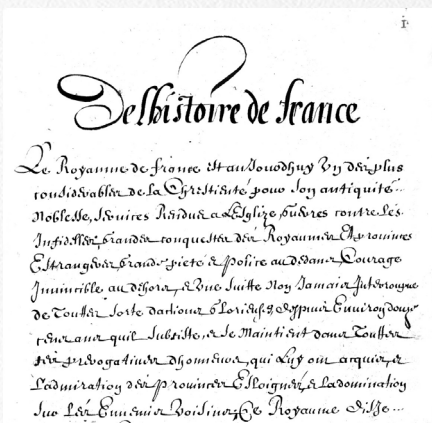 1.
De Lhistoire de france
Le Royaume de france est aujourdhuy Un des plus
considerables de la Chrestienté pour son antiquité
Noblesse, services Rendus a L'Eglize, guerres contre les
Infidelles, grandes conquestes des Royaumes Et provinces
Estrangeres, grande pieté et Police au dedans, Courage
Invincible au dehors, et Une suitte Non Jamais Interrompue
de Touttes sorte d'actions glorieuses, depuis Environ douze
cens ans quil subsiste, et se Maintient dans Touttes
les prerogatives dhonneur, qui Luy ont acquis, et
L'admiration des provinces Esloignées, et La domination
sur Les Ennemis Voisins, Ce Royaume